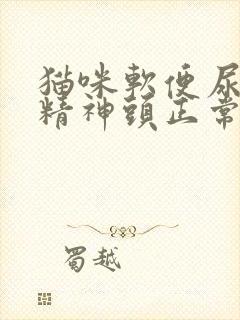 猫咪軟便尿
精神頭正常
蜀越